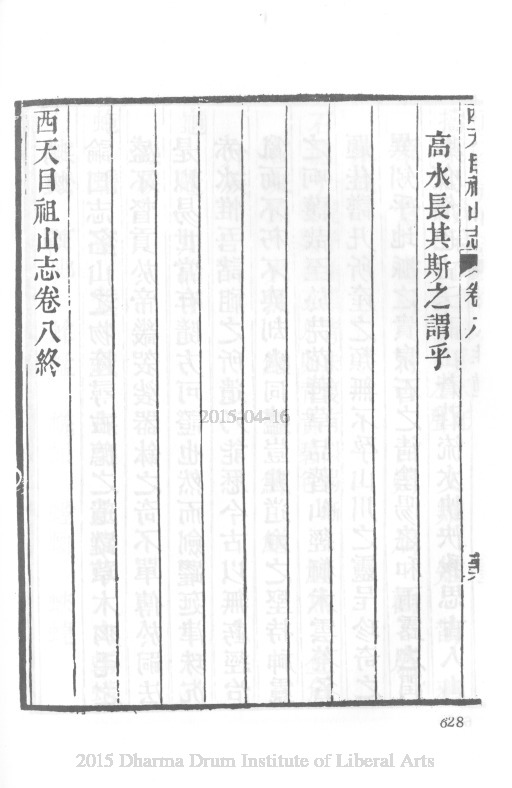 西天目祖山志 卷八
高水長其斯之謂乎
西天目祖山志卷八終
2015-04-16
628
2015 Dharma Drum Institute of Liberal Arts